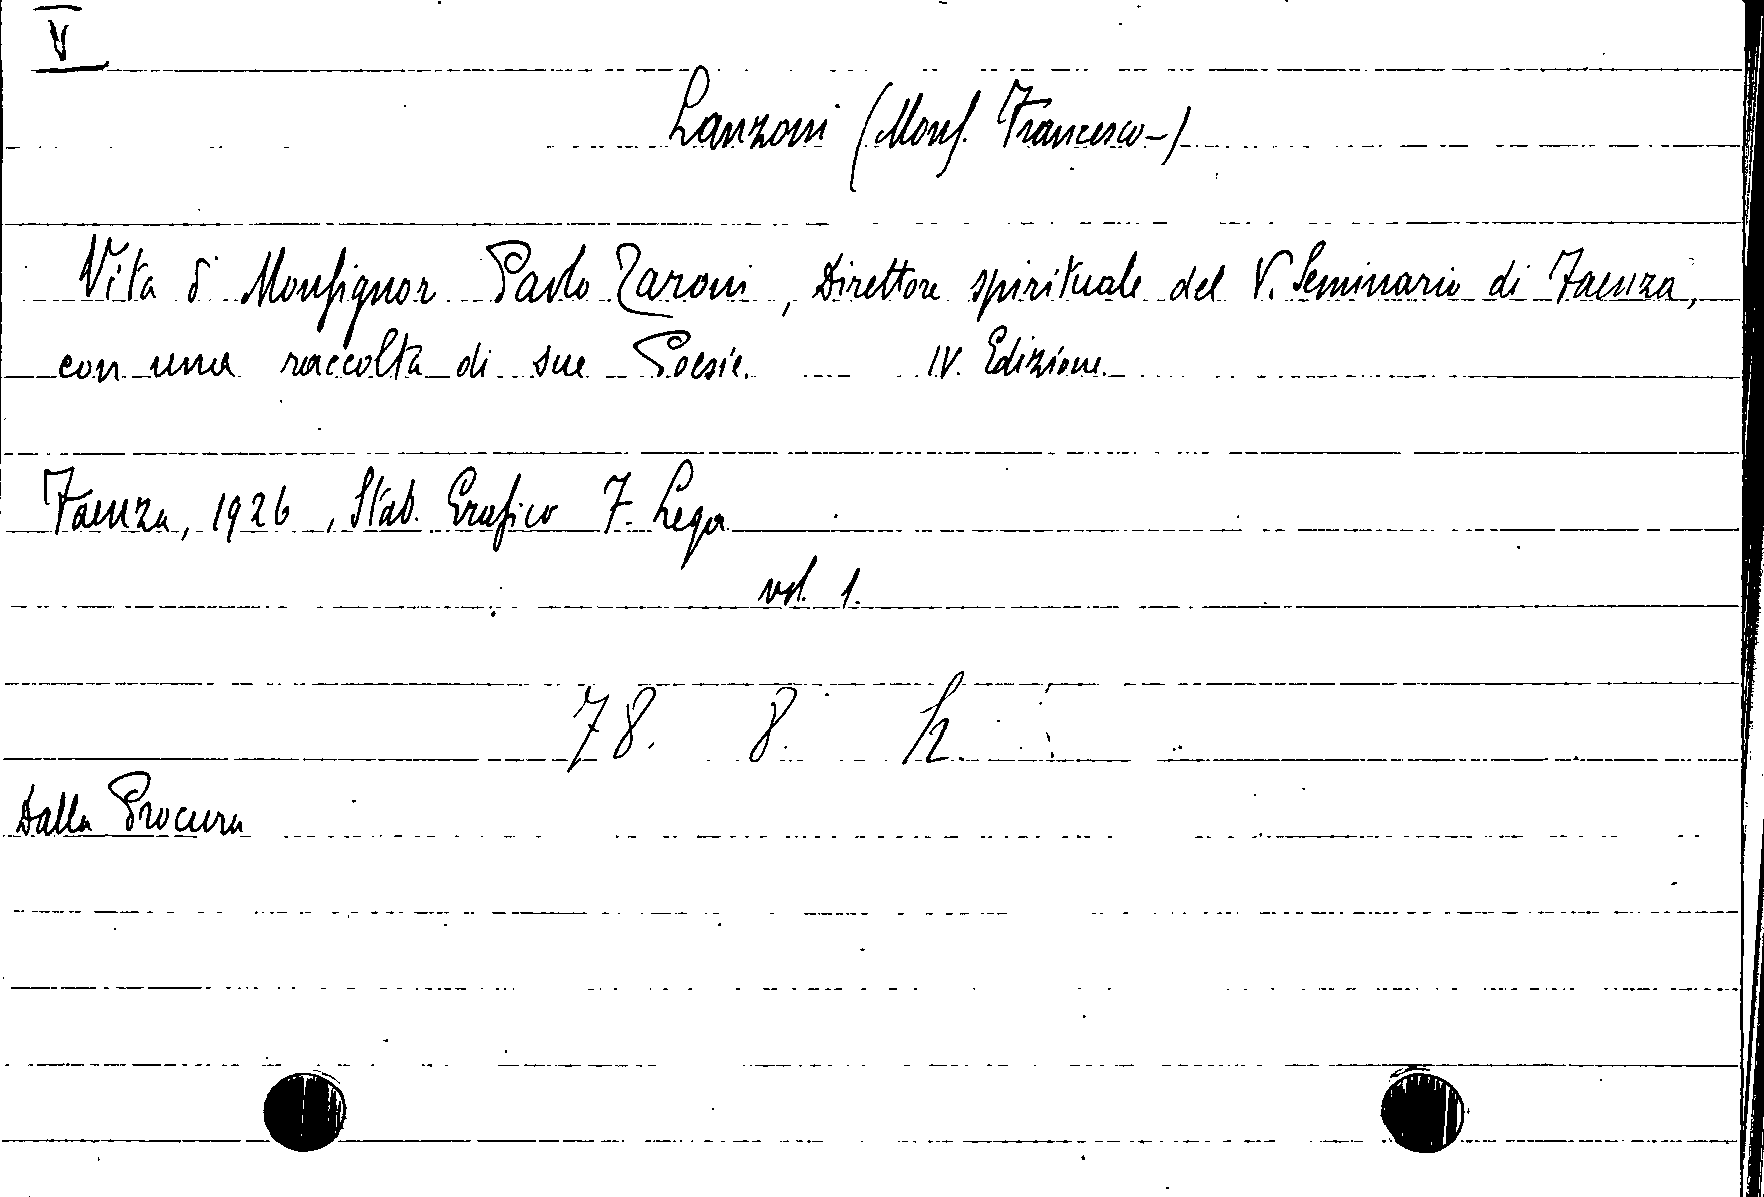 V
Lanzoni (Mons. Francesco-)
Vita di Monsignor Paolo Taroni, Direttore spirituale del V. Seminario di Faenza,
con una raccolta di sue Poesie. IV. Edizione.
Faenza, 1926, Stab. Grafico F. Lega
vol. 1.
78. 8. h.
Dalla Procura